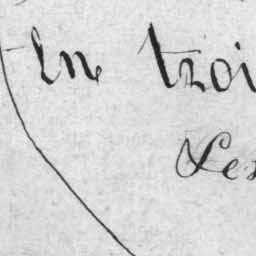 En troi
Les